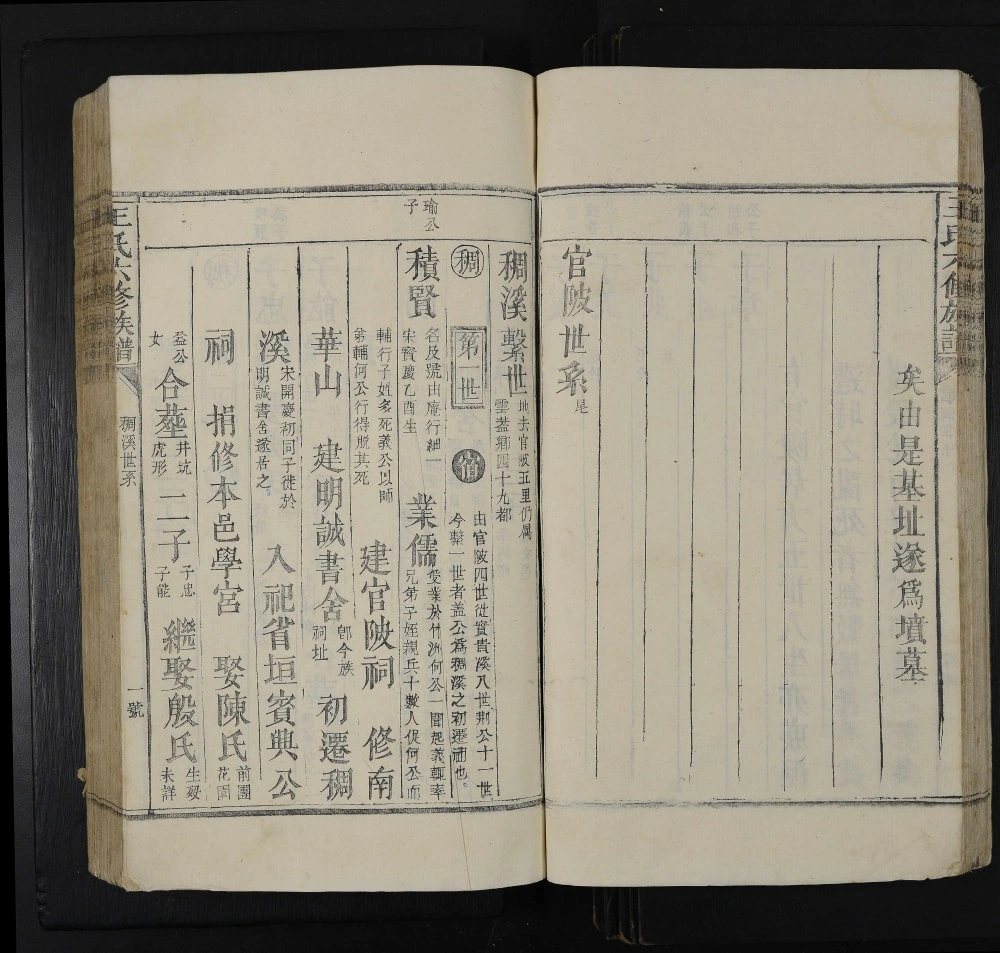 王氏六修族譜
矣由是基址遂爲墳墓
官陂世系是
稠溪繫世
地去官陂五里仍属
雲蓋鄉四十九都
稠
第一世
由官陂四世徙實貴溪八世荆公十一世
今繫一世者盖公爲稠溪之初遷祖也。
瑜公
子
積賢
名及號由庵行細一
宋賢慶乙酉生
業儒
受業於竹洲何公一聞起義輒率
兄弟子姪親兵十數人從何公而
輔行子姓多死義公以師
弟輔何公行得脫其死
建官陂祠 修南
華山 建明誠書舍
卽今族
祠址
初遷稠
溪
宋開慶初同子徙於
明誠書舍遂居之。
入祀省垣賓典公
祠 捐修本邑學宮 娶陳氏
前團
花園
益公
女
合塟
井坑
虎形
二子
子忠
子能
繼娶殷氏
生歿
未詳
王氏六修族譜
稠溪世系
一號